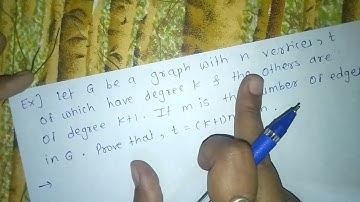 Ex] Let G be a graph with n vertices, t
of which have degree k & the others are
of degree k+1. If m is the number of edges
in G. Prove that, t = (k+1)n
→